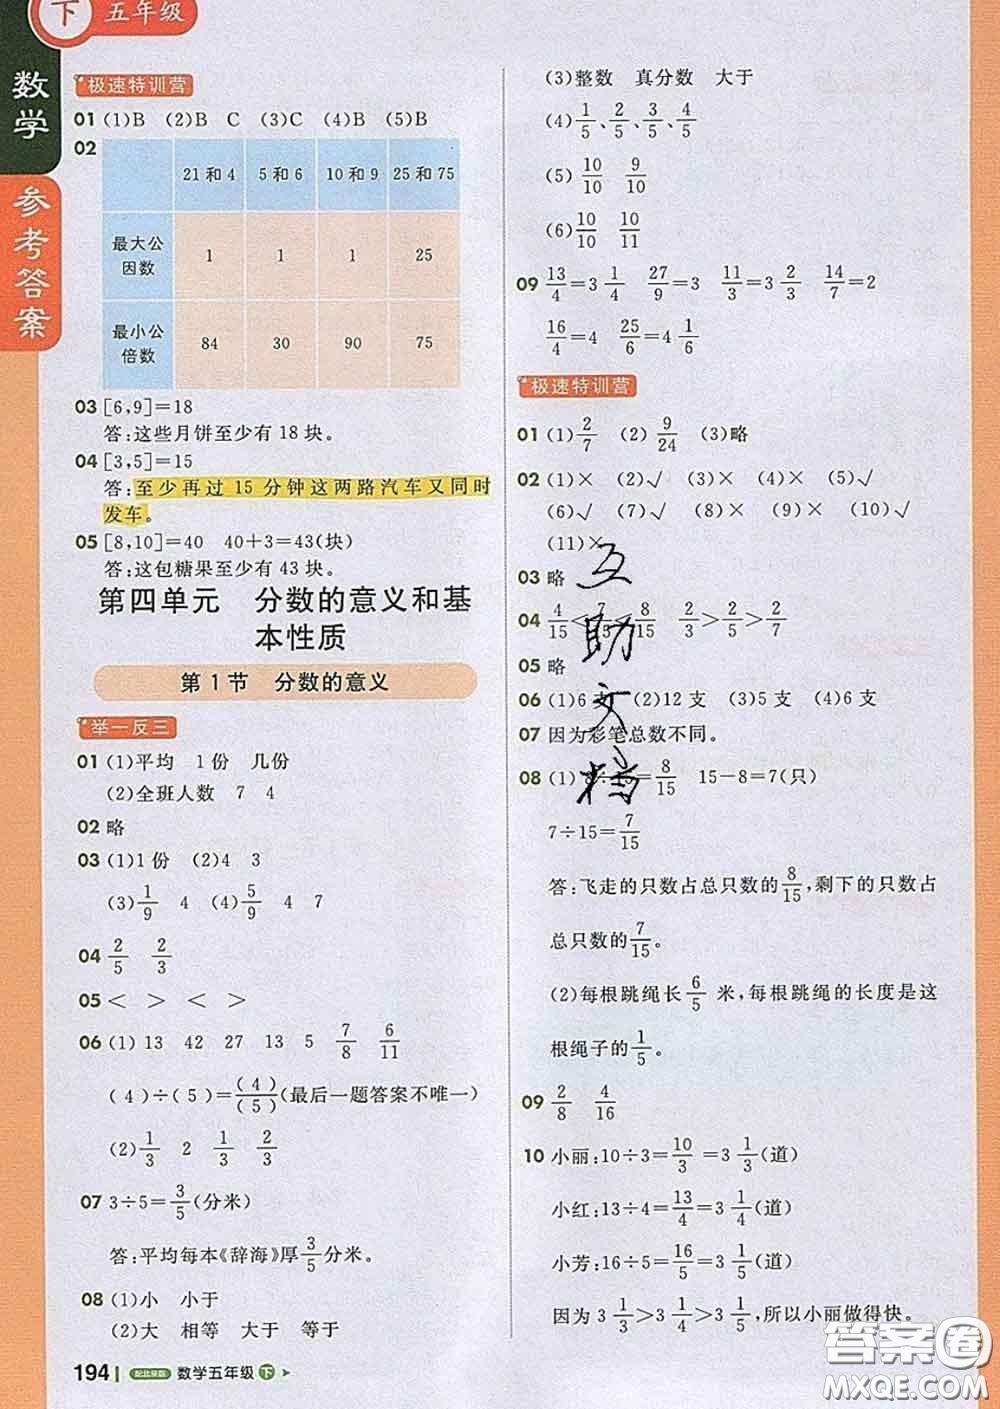 下 五年级
数学
参考答案
极速特训营
01 (1)B (2)B C (3)C (4)B (5)B
02
21和4 5和6 10和9 25和75
最大公因数 1 1 1 25
最小公倍数 84 30 90 75
03 [6,9]=18
答:这些月饼至少有18块。
04 [3,5]=15
答:至少再过15分钟这两路汽车又同时
发车。
05 [8,10]=40 40+3=43(块)
答:这包糖果至少有43块。
第四单元 分数的意义和基
本性质
第1节 分数的意义
举一反三
01 (1)平均 1份 几份
(2)全班人数 7 4
02 略
03 (1)1份 (2)4 3
(3)1/9 4 (4)5/9 4 7
04 2/5 2/3
05 < > < >
06 (1) 13 42 27 13 5 7/8 6/11
(4)÷(5)=(4)/(5)(最后一题答案不唯一)
(2)1/3 2 1/3 2/3
07 3÷5=3/5(分米)
答:平均每本《辞海》厚3/5分米。
08 (1)小 小于
(2)大 相等 大于 等于
194 配北京版 数学五年级 下
(3)整数 真分数 大于
(4)1/5、2/5、3/5、4/5
(5)10/10 9/10
(6)10/10 10/11
09 13/4=3 1/4 27/9=3 11/3=3 2/3 14/7=2
16/4=4 25/6=4 1/6
极速特训营
01 (1)2/7 (2)9/24 (3)略
02 (1)× (2)√ (3)× (4)× (5)√
(6)√ (7)√ (8)× (9)× (10)√
(11)×
03 略
04 4/15<7/15<8/15 2/3>2/5>2/7
05 略
06 (1)6支 (2)12支 (3)5支 (4)6支
07 因为彩笔总数不同。
08 (1)8÷15=8/15 15-8=7(只)
7÷15=7/15
答:飞走的只数占总只数的8/15,剩下的只数占
总只数的7/15。
(2)每根跳绳长6/5米,每根跳绳的长度是这
根绳子的1/5。
09 2/8 4/16
10 小丽:10÷3=10/3=3 1/3(道)
小红:13÷4=13/4=3 1/4(道)
小芳:16÷5=16/5=3 1/5(道)
因为3 1/3>3 1/4>3 1/5,所以小丽做得快。
互助文档
答案圈
MXQE.COM